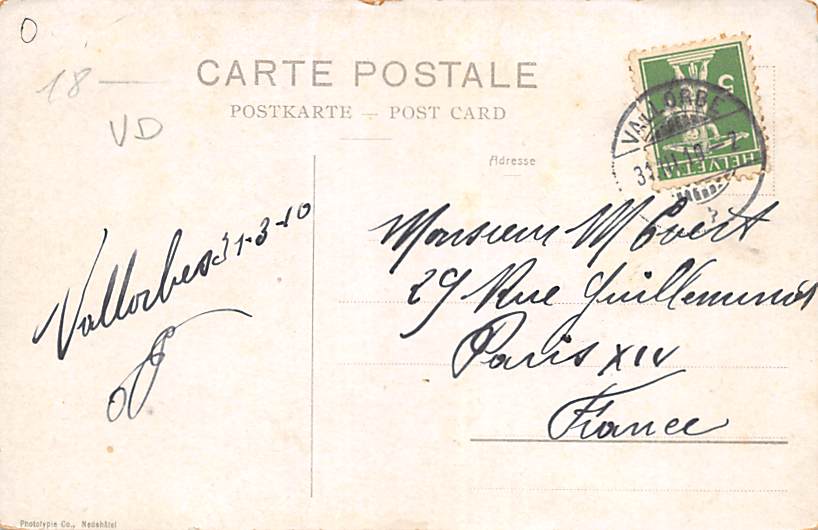 O
18 —
VD
CARTE POSTALE
POSTKARTE — POST CARD
Adresse
5
HELVETIA
VALLORBE
31.III.10 – 2
Vallorbes 31-3-10
Monsieur M
29 Rue Guilleminot
Paris XIV
France
Phototypie Co., Neuchâtel